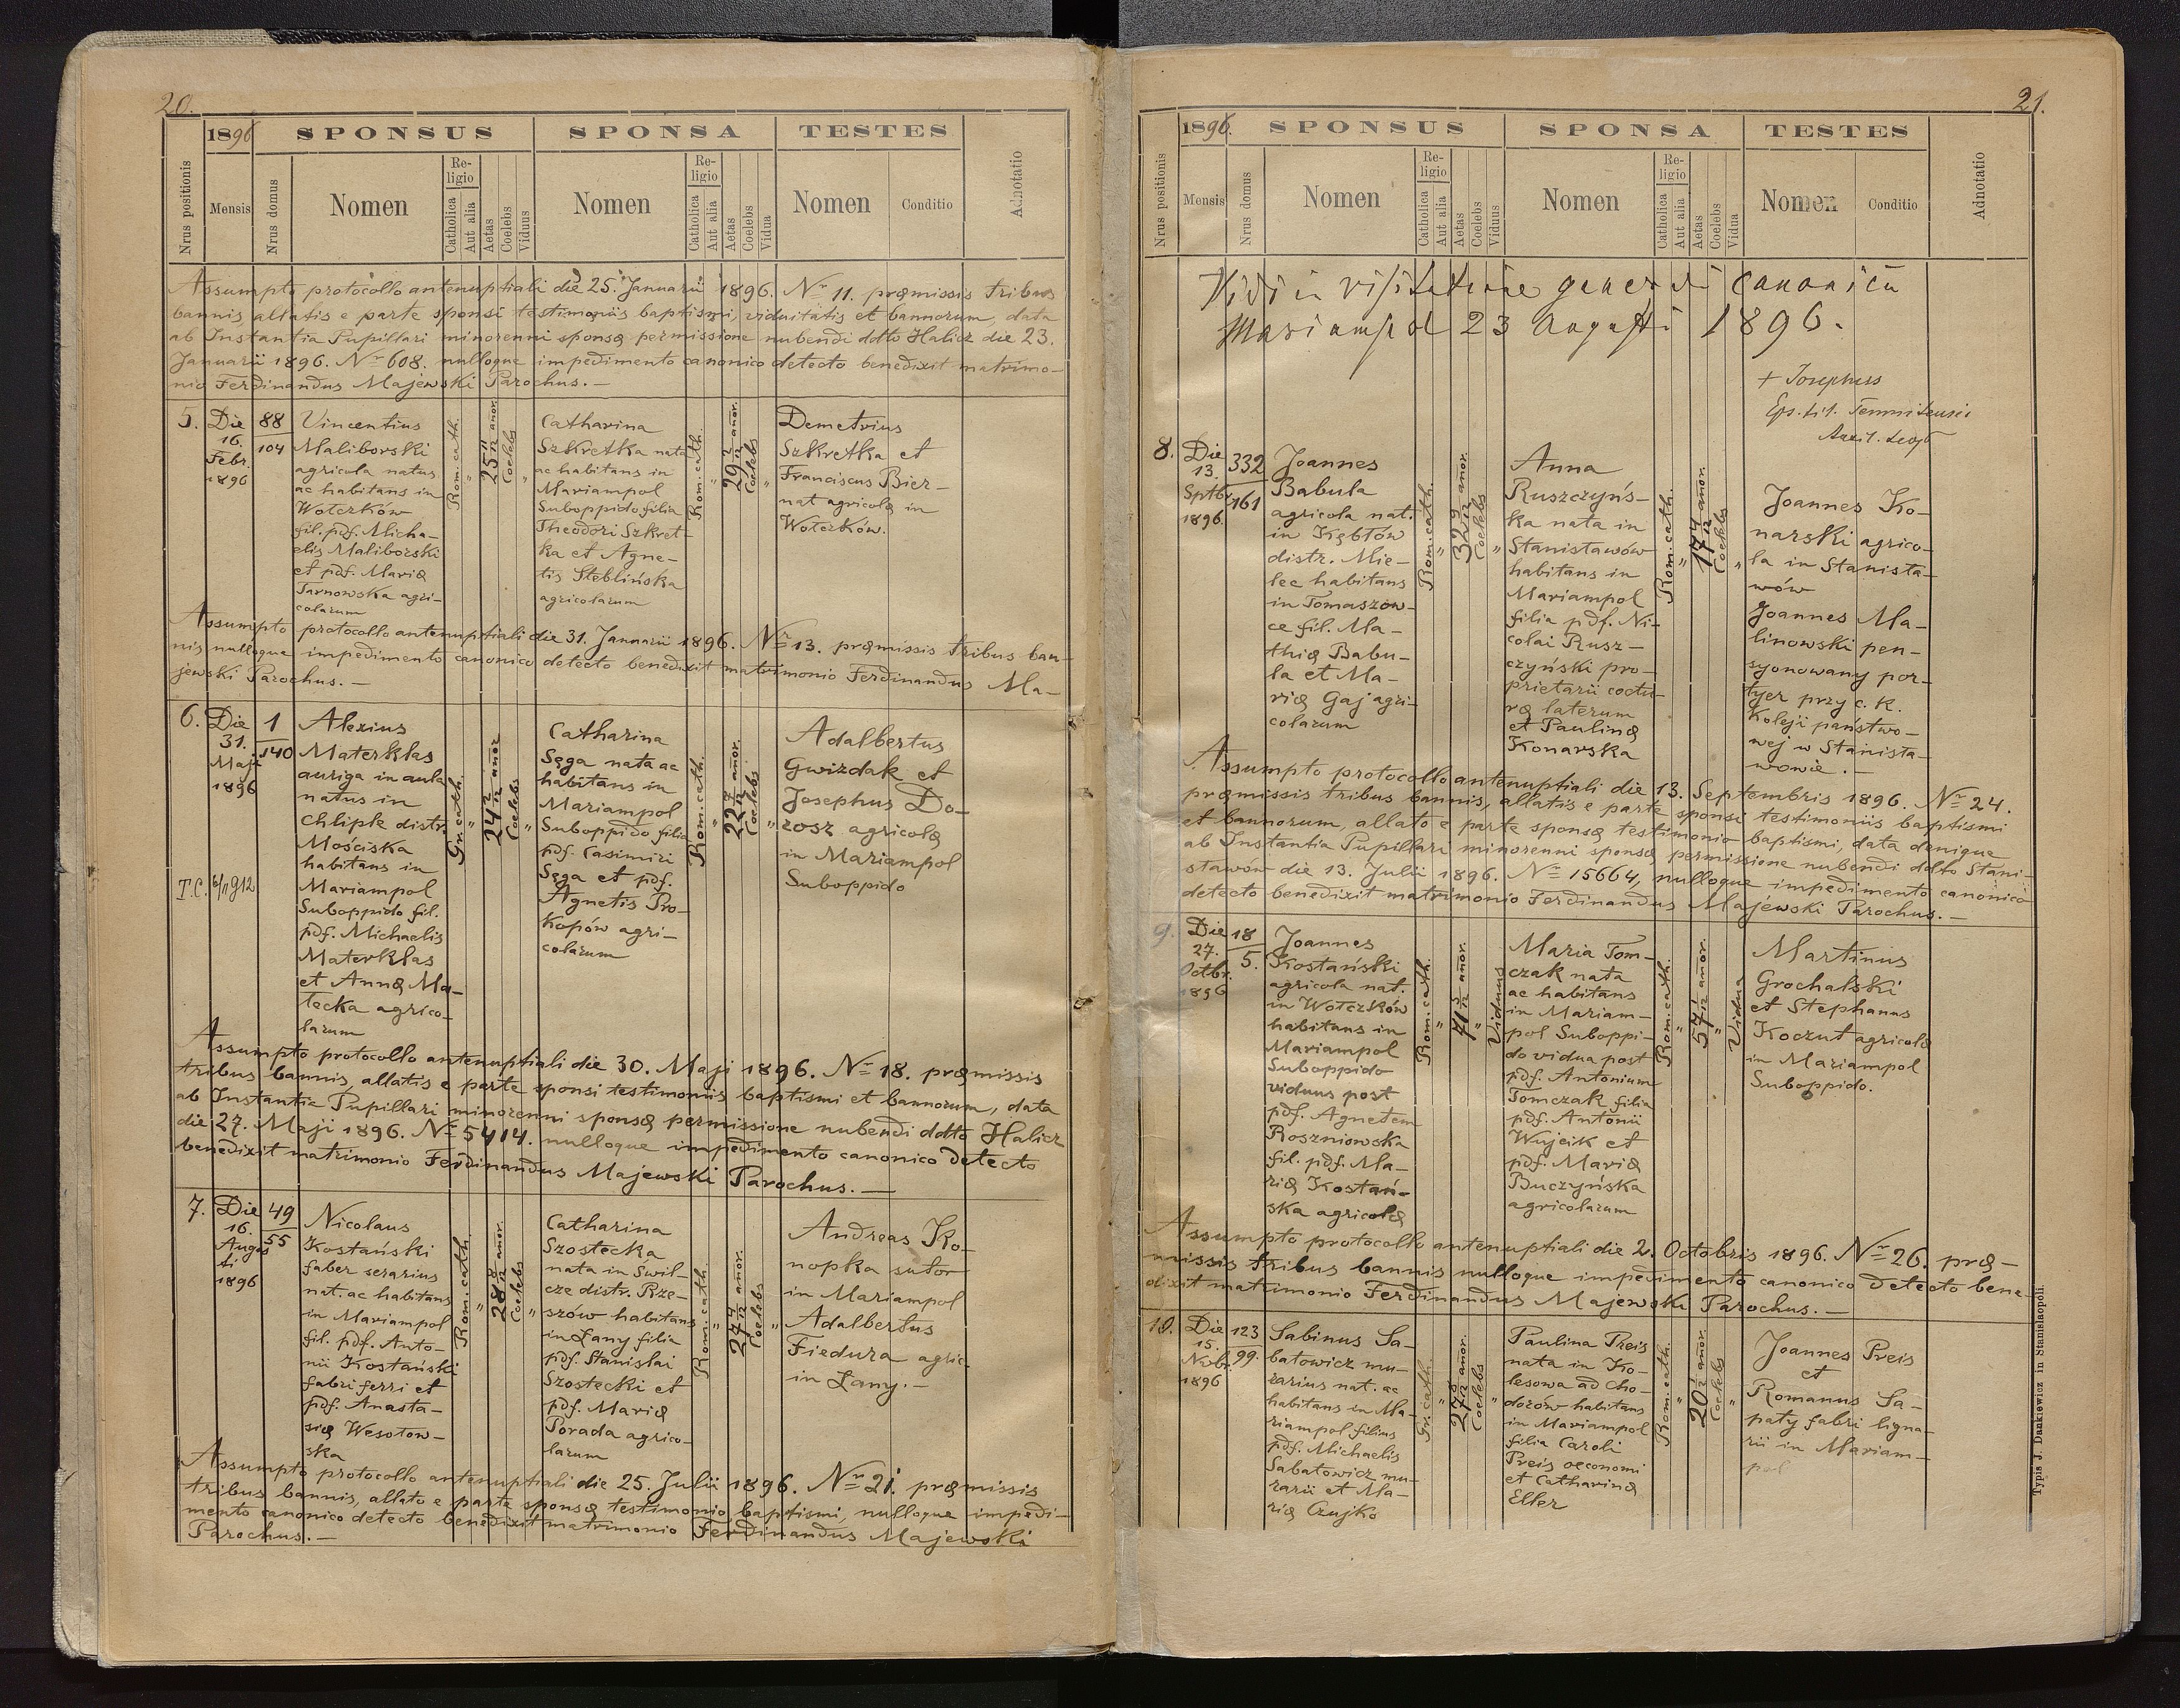 20.
1896 SPONSUS SPONSA TESTES
Nrus positionis
Mensis
Nrus domus
Nomen
Religio
Catholica
Aut alia
Aetas
Coelebs
Viduus
Nomen
Religio
Catholica
Aut alia
Aetas
Coelebs
Vidua
Nomen
Conditio
Adnotatio
Assumpto protocollo antenuptiali die 25. Januarii 1896. Nr 11. præmissis tribus
bannis allatis e parte sponsi testimoniis baptismi, viduitatis et bannorum, data
ab Instantia Pupillari minorenni sponsæ permissione nubendi ddto Halicz die 23.
Januarii 1896. Nr 608. nulloque impedimento canonico detecto benedixit matrimo-
nio Ferdinandus Majewski Parochus. —
5.
Die
16.
Febr.
1896
88
104
Vincentius
Maliborski
agricola natus
ac habitans in
Wołczków
fil. pdf. Micha-
elis Maliborski
et pdf. Mariæ
Tarnowska agri-
colarum
Rom. cath.
"
25 11/12 anor.
Coelebs
"
Catharina
Szkretka nata
ac habitans in
Mariampol
Suboppido filia
Theodori Szkret-
ka et Agne-
tis Steblińska
agricolarum
Rom. cath.
"
29 2/12 anor.
Coelebs
"
Demetrius
Szkretka et
Franciscus Bier-
nat agricolæ in
Wołczków.
Assumpto protocollo antenuptiali die 31. Januarii 1896. Nr 13. præmissis tribus ban-
nis nulloque impedimento canonico detecto benedixit matrimonio Ferdinandus Ma-
jewski Parochus. —
6.
Die
31.
Maji
1896
T.C. 6/11 912
1
140
Alexius
Materklas
auriga in aula
natus in
Chliple distr.
Mościska
habitans in
Mariampol
Suboppido fil.
pdf. Michaelis
Materklas
et Annæ Ma-
tecka agrico-
larum
Gr. cath.
"
24 2/12 anor
Coelebs
"
Catharina
Sęga nata ac
habitans in
Mariampol
Suboppido filia
pdf. Casimiri
Sęga et pdf.
Agnetis Pro-
kopów agri-
colarum
Rom. cath.
"
22 7/12 anor.
Coelebs
"
Adalbertus
Gwizdak et
Josephus Do-
rosz agricolæ
in Mariampol
Suboppido
Assumpto protocollo antenuptiali die 30. Maji 1896. Nr 18. præmissis
tribus bannis, allatis e parte sponsi testimoniis baptismi et bannorum, data
ab Instantia Pupillari minorenni sponsæ permissione nubendi ddto Halicz
die 27. Maji 1896. Nr 5414. nulloque impedimento canonico detecto
benedixit matrimonio Ferdinandus Majewski Parochus. —
7.
Die
16.
Augus
ti
1896
49
55
Nicolaus
Kostański
faber serarius
nat. ac habitans
in Mariampol
fil. pdf. Anto-
nii Kostański
fabri ferri et
pdf. Anasta-
siæ Wesołow-
ska
Rom. cath.
"
28 8/12 anor.
Coelebs
"
Catharina
Szostecka
nata in Świl-
cze distr. Rze-
szów habitans
in Łany filia
pdf. Stanislai
Szostecki et
pdf. Mariæ
Porada agrico-
larum
Rom. cath.
"
27 4/12 anor.
Coelebs
"
Andreas Ko-
nopka sutor
in Mariampol
Adalbertus
Fiedura agric.
in Łany. —
Assumpto protocollo antenuptiali die 25. Julii 1896. Nr 21. præmissis
tribus bannis, allato e parte sponsæ testimonio baptismi, nulloque impedi-
mento canonico detecto benedixit matrimonio Ferdinandus Majewski
Parochus. —
21.
1896. SPONSUS SPONSA TESTES
Nrus positionis
Mensis
Nrus domus
Nomen
Religio
Catholica
Aut alia
Aetas
Coelebs
Viduus
Nomen
Religio
Catholica
Aut alia
Aetas
Coelebs
Vidua
Nomen
Conditio
Adnotatio
Vidi in visitatione generali canonica
Mariampol 23 Augusti 1896.
+ Josephus
Eps. tit.
8.
Die
13.
Sptbr.
1896.
332
161
Joannes
Babula
agricola nat.
in Kębłów
distr. Mie-
lec habitans
in Tomaszow-
ce fil. Ma-
thiæ Babu-
la et Ma-
riæ Gaj agri-
colarum
Rom. cath.
"
32 9/12 anor.
Coelebs
"
Anna
Ruszczyńs-
ka nata in
Stanisławów
habitans in
Mariampol
filia pdf. Ni-
colai Rusz-
czyński pro-
prietarii coctu-
ræ laterum
et Paulinæ
Konarska
Rom. cath.
"
17 4/12 anor.
Coelebs
"
Joannes Ko-
narski agrico-
la in Stanisła-
wów
Joannes Ma-
linowski pen-
syonowany por-
tyer przy c. k.
Koleji państwo-
wej w Stanisła-
wowie. —
Assumpto protocollo antenuptiali die 13. Septembris 1896. Nr 24.
præmissis tribus bannis, allatis e parte sponsi testimoniis baptismi
et bannorum, allato e parte sponsæ testimonio baptismi, data denique
ab Instantia Pupillari minorenni sponsæ permissione nubendi ddto Stani-
sławów die 13. Julii 1896. Nr 15664, nulloque impedimento canonico
detecto benedixit matrimonio Ferdinandus Majewski Parochus. —
9.
Die
27.
Octbr.
1896
18
5.
Joannes
Kostański
agricola nat.
in Wołczków
habitans in
Mariampol
Suboppido
viduus post
pdf. Agnetem
Roszniowska
fil. pdf. Ma-
riæ Kostań-
ska agricolæ
Rom. cath.
"
71 5/12 anor.
"
Viduus
Maria Tom-
czak nata
ac habitans
in Mariam-
pol Suboppi-
do vidua post
pdf. Antonium
Tomczak filia
pdf. Antonii
Wujcik et
pdf. Mariæ
Buczyńska
agricolarum
Rom. cath.
"
57 1/12 anor.
"
Vidua
Martinus
Grochalski
et Stephanus
Koczut agricolæ
in Mariampol
Suboppido.
Assumpto protocollo antenuptiali die 2. Octobris 1896. Nr 26. præ-
missis tribus bannis nulloque impedimento canonico detecto bene-
dixit matrimonio Ferdinandus Majewski Parochus. —
10.
Die
15.
Nvbr.
1896
123
99.
Sabinus Sa-
batowicz mu-
rarius nat. ac
habitans in Ma-
riampol filius
pdf. Michaelis
Sabatowicz mu-
rarii et Ma-
riæ Czujko
Gr. cath.
"
27 8/12 anor.
Coelebs
"
Paulina Preis
nata in Ko-
lesowa ad Cho-
dorów habitans
in Mariampol
filia Caroli
Preis oeconomi
et Catharinæ
Eller
Rom. cath.
"
20 1/12 anor.
Coelebs
"
Joannes Preis
et
Romanus Sa-
paty fabri ligna-
rii in Mariam-
pol
Typis J. Dankiewicz in Stanislaopoli.